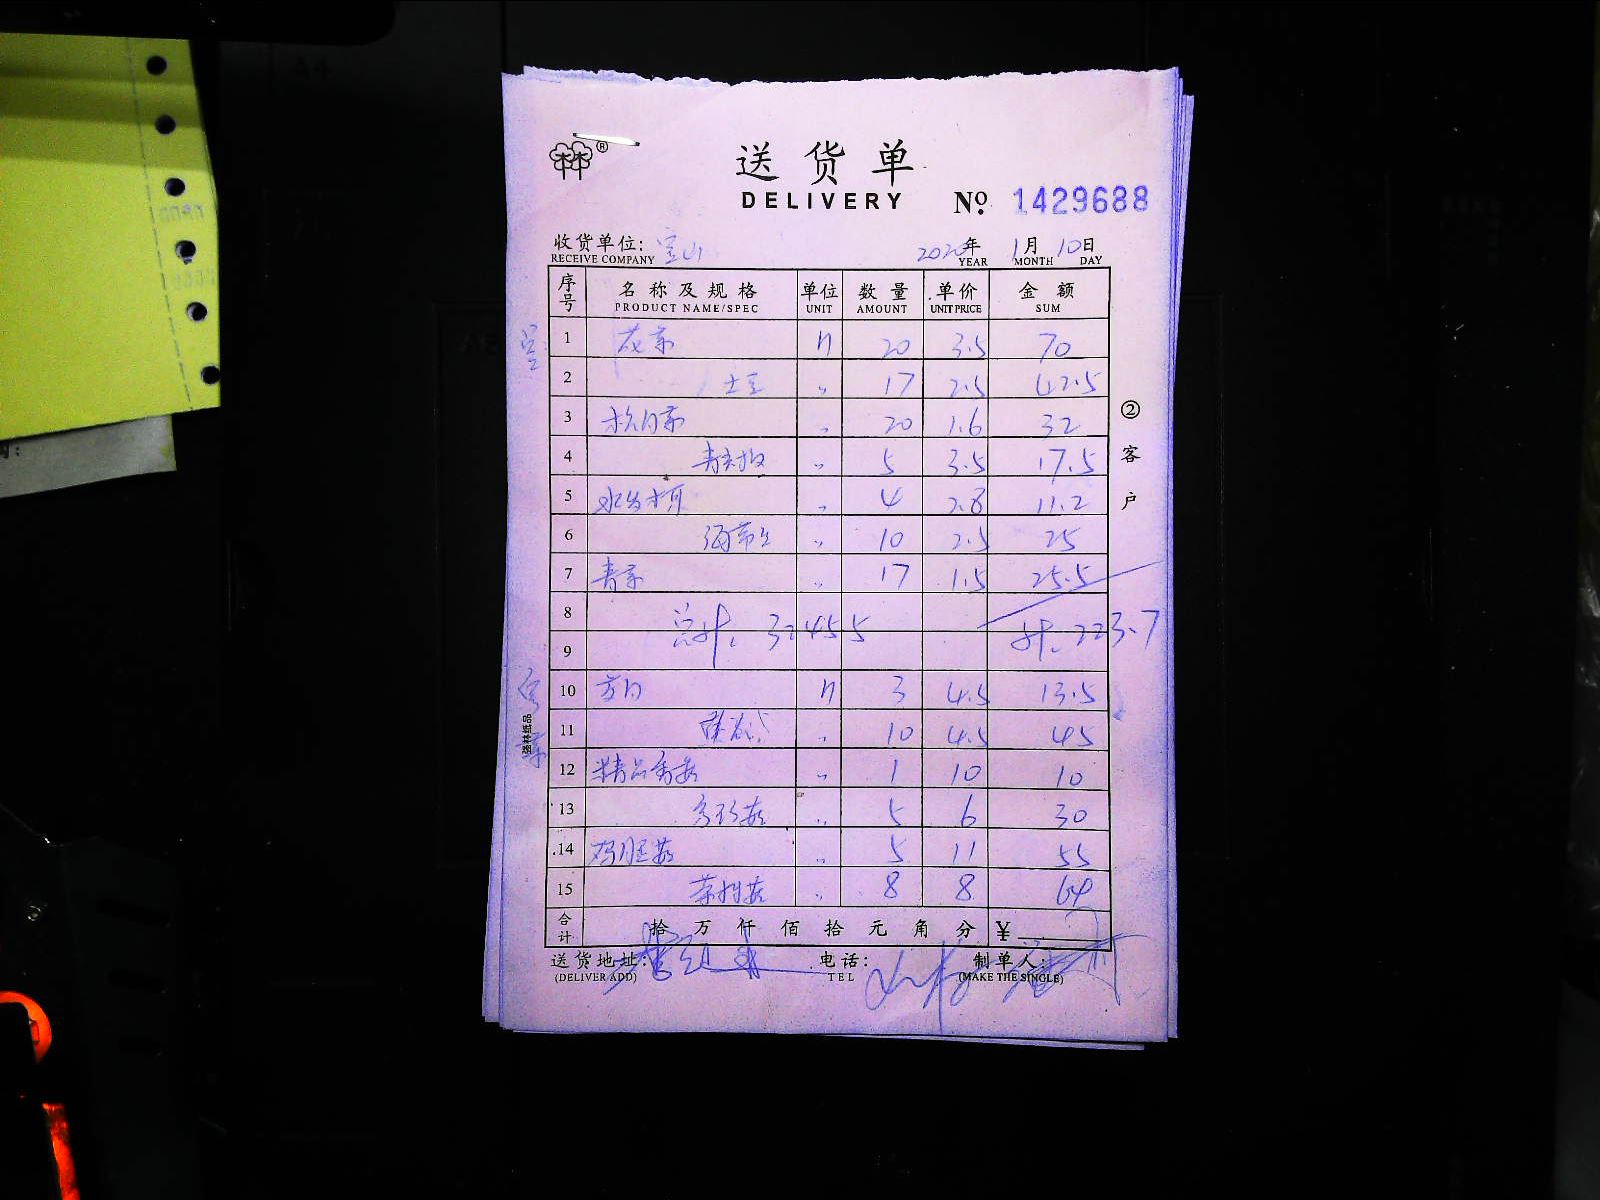 送货单
DELIVERY
№ 1429688
收货单位: 宝山 2020年 1月 10日
RECEIVE COMPANY YEAR MONTH DAY
序号 名称及规格 单位 数量 单价 金额
PRODUCT NAME/SPEC UNIT AMOUNT UNIT PRICE SUM
1 花菜 斤 20 3.5 70
2 土豆 〃 17 2.5 42.5
3 〃 20 1.6 32
4 〃 5 3.5 17.5
5 〃 4 2.8 11.2
6 海带 〃 10 2.5 25
7 青菜 〃 17 1.5 25.5
8 总计: 计: 223.7
9
10 方 斤 3 4.5 13.5
11 〃 10 4.5 45
12 精品香菇 〃 1 10 10
13 秀珍菇 〃 5 6 30
14 菇 〃 5 11 55
15 茶树菇 〃 8 8 64
合计 拾 万 仟 佰 拾 元 角 分 ¥
送货地址: 电话: 制单人:
(DELIVER ADD) TEL (MAKE THE SINGLE)
②客户
强林纸品